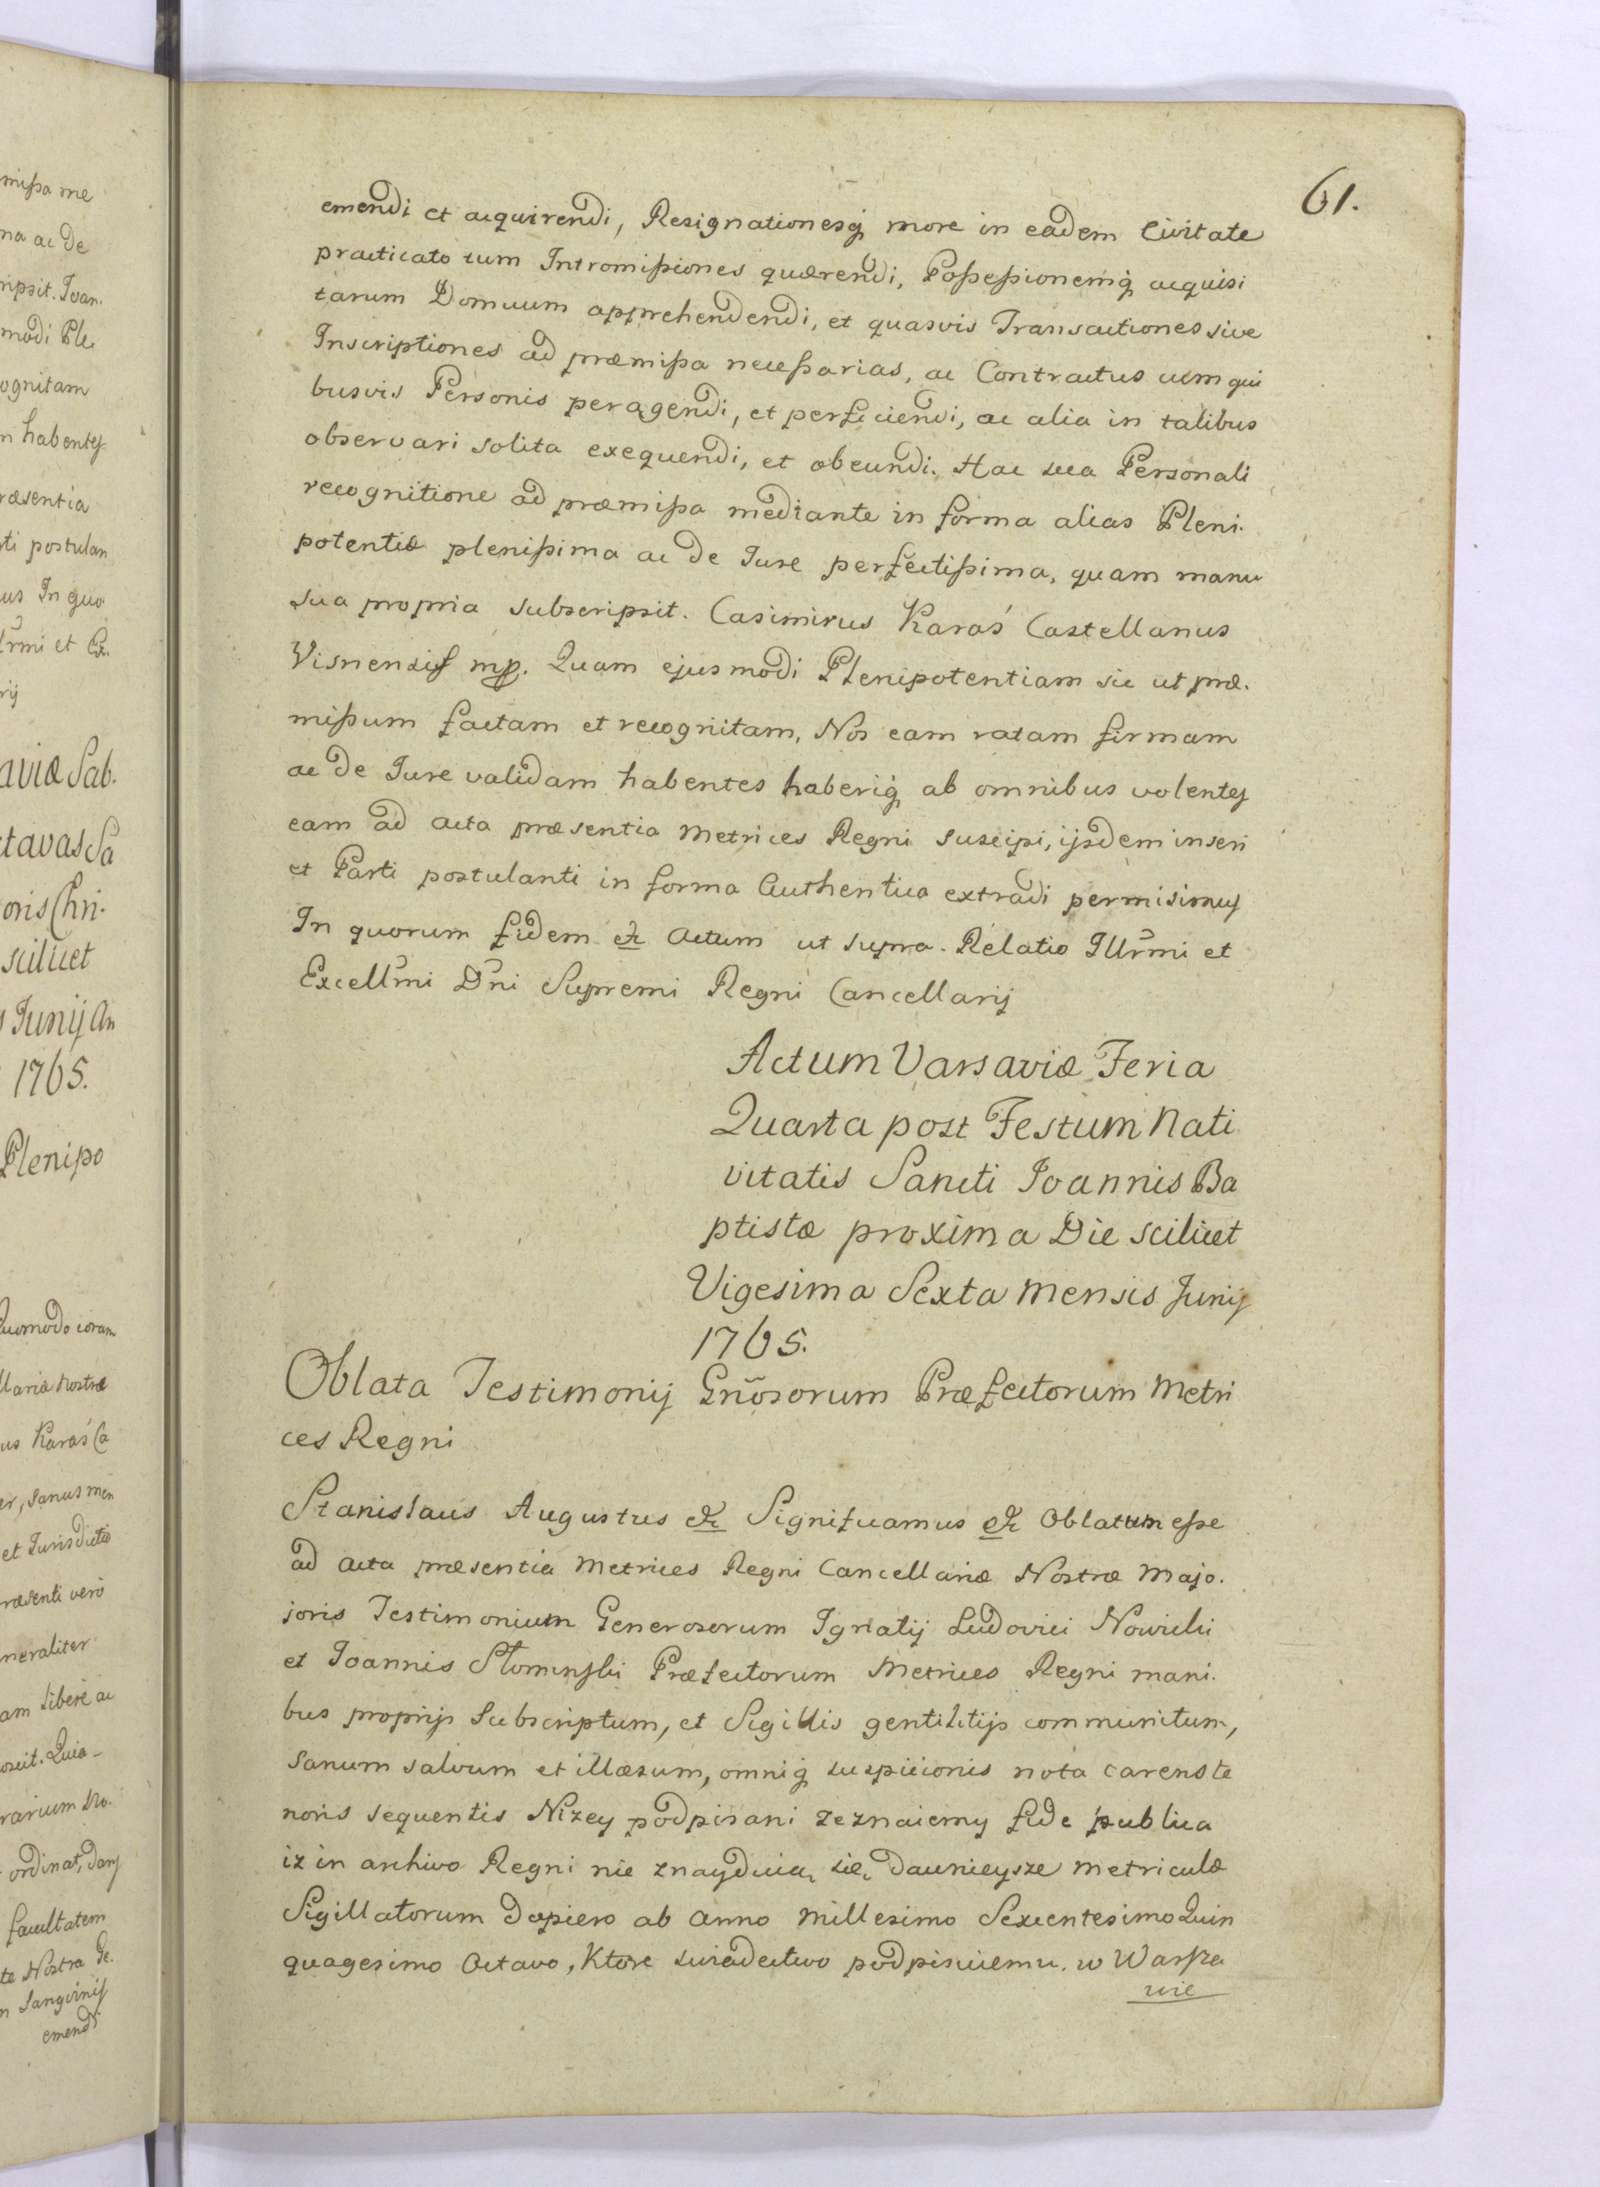 61.
emendi et acquirendi, Resignationesq more in eadem Civitate
practicato cum Intromißiones quærendi, Poßeßionemq acquisi
tarum Domuum apprehendendi, et quasvis Transactiones sive
Inscriptiones ad præmißa neceßarias, ac Contractus cum qui
busvis Personis peragendi, et perficiendi, ac alia in talibus
observari solita exequendi, et obeundi. Hac sua Personali
recognitione ad præmißa mediante in forma alias Pleni.
potentiæ plenißima ac de Jure perfectißima, quam manu
sua propria subscripsit. Casimirus Karaś Castellanus
Visnensis mp. Quam ejusmodi Plenipotentiam sic ut præ.
mißum factam et recognitam, Nos eam ratam firmam
ac de Jure validam habentes haberiq ab omnibus volentes
eam ad Acta præsentia Metrices Regni suscipi, ijsdem inseri
et Parti postulanti in forma Authentica extradi permisimus
In quorum fidem &c Actum ut supra. Relatio Illrmi et
Excellmi Dni Supremi Regni Cancellarij
Actum Varsaviæ Feria
Quarta post Festum Nati
vitatis Sancti Joannis Ba
ptistæ proxima Die scilicet
Vigesima Sexta Mensis Junij
1765.
Oblata Testimonij Gnõsorum Præfectorum Metri
ces Regni
Stanislaus Augustus &c Significamus &c Oblatum eße
ad Acta præsentia Metrices Regni Cancellariæ Nostræ Majo.
joris Testimonium Generosorum Ignatij Ludovici Nowicki
et Joannis Słominski Præfectorum Metrices Regni mani.
bus proprijs Subscriptum, et Sigillis gentilitijs communitum,
Sanum salvum et illæsum, omniq suspicionis nota carens te
noris sequentis Nizey podpisani zeznaiemy fide publica
iz in archivo Regni nie znayduią się, daunieysze Metriculæ
Sigillatorum dopiero ab Anno Millesimo Sexcentesimo Quin
quagesimo Octavo, Ktore swiadectwo podpisuiemy. w Warsza
wie